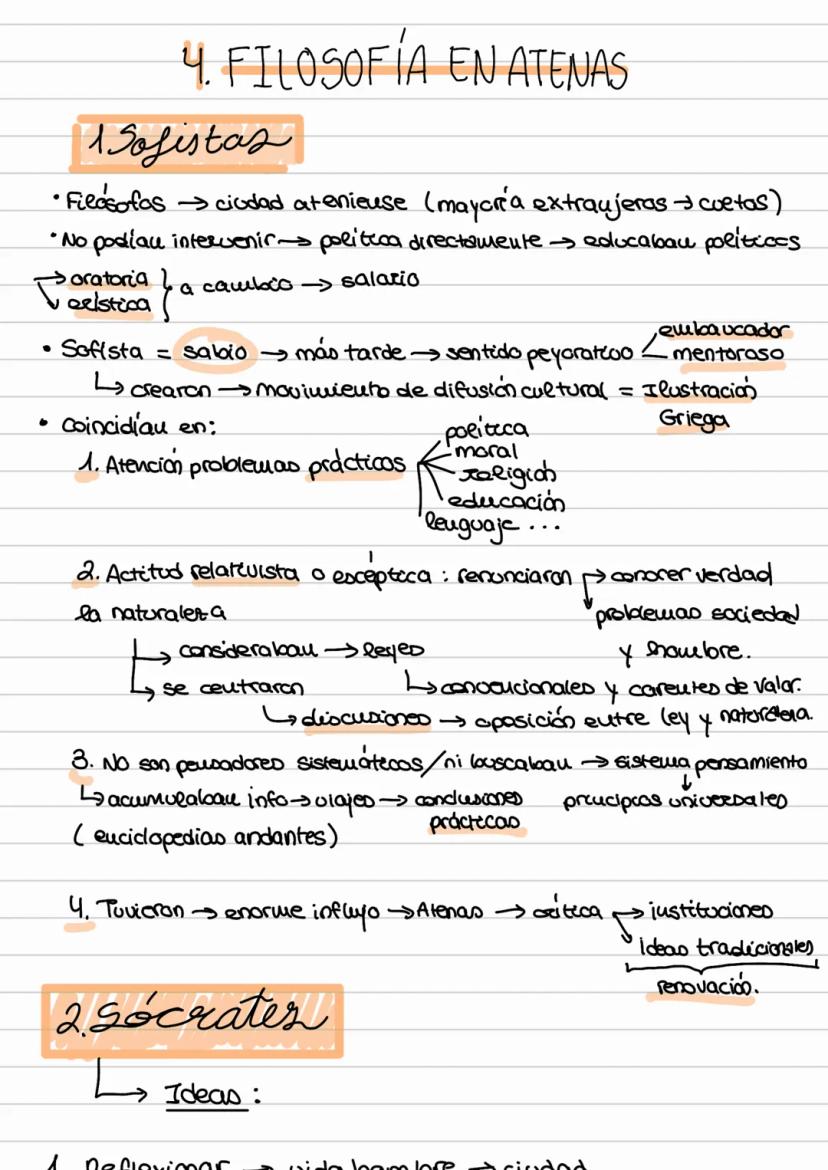 4. FILOSOFÍA EN ATENAS
1. Sofistas
• Filósofos → ciudad ateniense (mayoría extranjeros → cuetas)
• No podían intervenir → política directamente → educaban políticos
→ oratoria
↘ erística } a cambio → salario
• Sofista = sabio → más tarde → sentido peyorativo < embaucador
mentoroso
↳ crearon → movimiento de difusión cultural = Ilustración
Griega
• Coincidían en:
1. Atención problemas prácticos
política
moral
religión
educación
lenguaje ...
2. Actitud relativista o escéptica : renunciaron → conocer verdad
la naturaleza ↓ problemas sociedad
y hombre.
↳ consideraban → leyes
↳ convencionales y carentes de valor.
↳ se centraron
↳ discusiones → oposición entre ley y naturaleza.
3. No son pensadores sistemáticos/ni buscaban → sistema pensamiento
↓
↳ acumulaban info → viajes → conclusiones prácticas
principios universales
(enciclopedias andantes)
4. Tuvieron → enorme influjo → Atenas → crítica → instituciones
↘ Ideas tradicionales
renovación.
2. Sócrates
↳ Ideas :
1. Reflexionar → vida hombre → ciudad